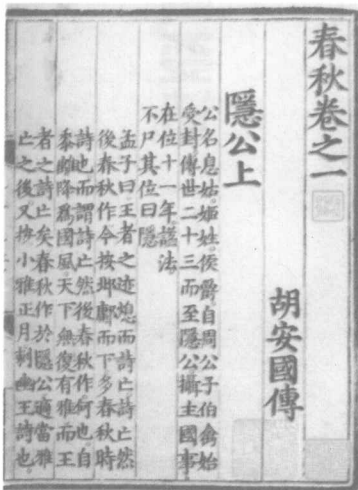 春秋卷之一
胡安國傳
隱公上
公名息姑姬姓侯爵自周公子伯禽始
受封傳世二十三而至隱公攝主國事
在位十一年諡法
不尸其位曰隱
孟子曰王者之迹熄而詩亡詩亡然
後春秋作今按邶鄘而下多春秋時
詩也而謂詩亡然後春秋作何也自
黍離降爲國風天下無復有雅而王
者之詩亡矣春秋作於隱公適當雅
亡之後又按小雅正月刺幽王詩也